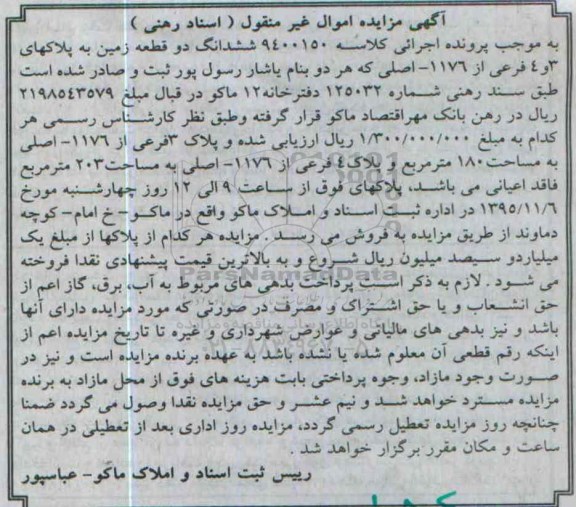 آگهی مزایده اموال غیر منقول ( اسناد رهنی )
به موجب پرونده اجرائی کلاسه ۹۴۰۰۱۵۰ ششدانگ دو قطعه زمین به پلاکهای
۳و۴ فرعی از ۱۱۷۶- اصلی که هر دو بنام یاشار رسول پور ثبت و صادر شده است
طبق سند رهنی شماره ۱۲۵۰۳۲ دفترخانه۱۲ ماکو در قبال مبلغ ۲۱۹۸۵۴۳۵۷۹
ریال در رهن بانک مهراقتصاد ماکو قرار گرفته وطبق نظر کارشناس رسمی هر
کدام به مبلغ ۱/۳۰۰/۰۰۰/۰۰۰ ریال ارزیابی شده و پلاک ۳فرعی از ۱۱۷۶- اصلی
به مساحت۱۸۰ مترمربع و پلاک٤ فرعی از ۱۱۷۶- اصلی به مساحت۲۰۳ مترمربع
فاقد اعیانی می باشد، پلاکهای فوق از ساعت ۹ الی ۱۲ روز چهارشنبه مورخ
۱۳۹۵/۱۱/۶ در اداره ثبت اسناد و املاک ماکو واقع در ماکو- خ امام- کوچه
دماوند از طریق مزایده به فروش می رسد . مزایده هر کدام از پلاکها از مبلغ یک
میلیاردو سیصد میلیون ریال شروع و به بالاترین قیمت پیشنهادی نقدا فروخته
ParsNamadData
می شود . لازم به ذکر است پرداخت بدهی های مربوط به آب، برق، گاز اعم از
حق انشعاب و یا حق اشتراک و مصرف در صورتی که مورد مزایده دارای آنها
باشد و نیز بدهی های مالیاتی و عوارض شهرداری و غیره تا تاریخ مزایده اعم از
اینکه رقم قطعی آن معلوم شده یا نشده باشد به عهده برنده مزایده است و نیز در
صورت وجود مازاد، وجوه پرداختی بابت هزینه های فوق از محل مازاد به برنده
مزایده مسترد خواهد شد و نیم عشر و حق مزایده نقدا وصول می گردد ضمنا
چنانچه روز مزایده تعطیل رسمی گردد، مزایده روز اداری بعد از تعطیلی در همان
ساعت و مکان مقرر برگزار خواهد شد .
رییس ثبت اسناد و املاک ماکو- عباسپور